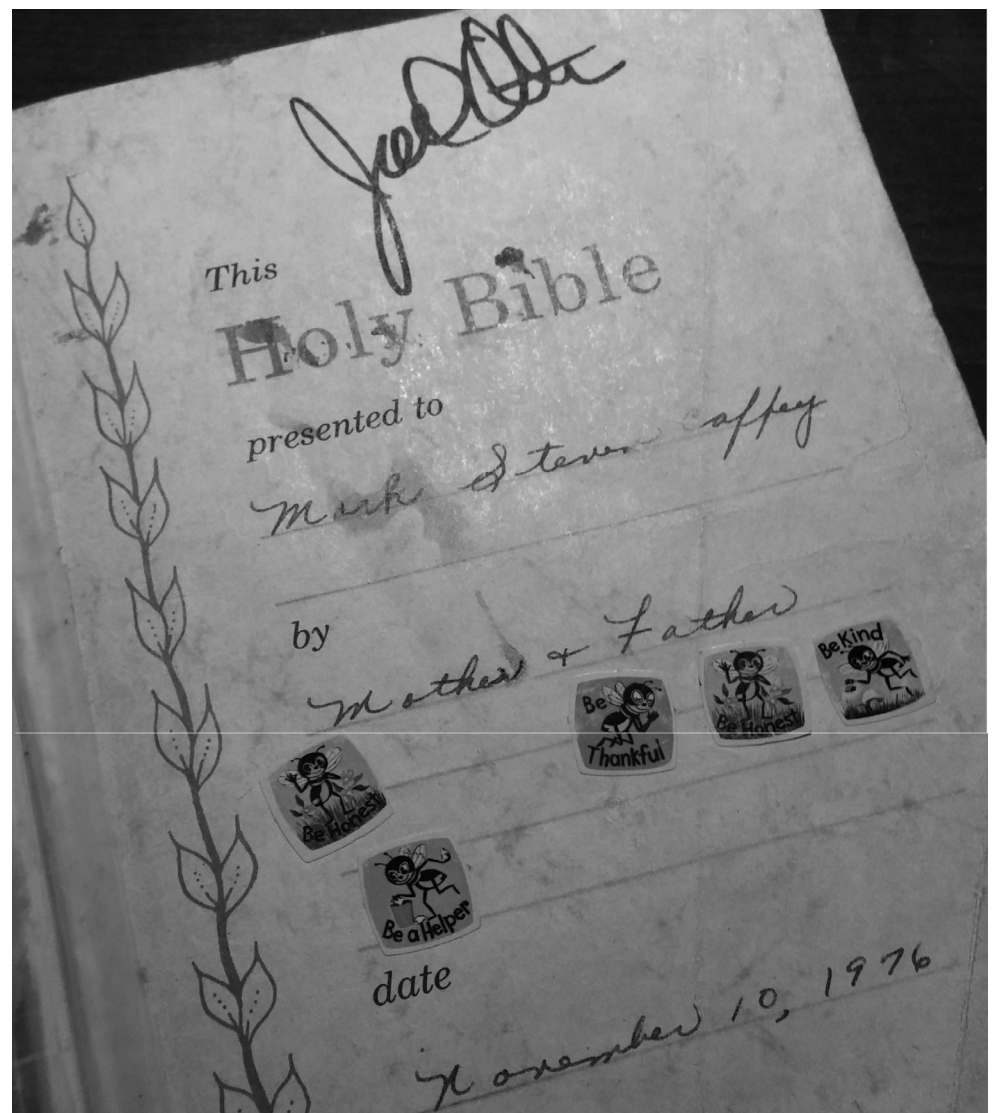 This
Holy Bible
presented to
Mark Steven
by
Mother & Father
Be Thankful
Be Honest
Be Kind
Be Honest
Be a Helper
date
November 10, 1976